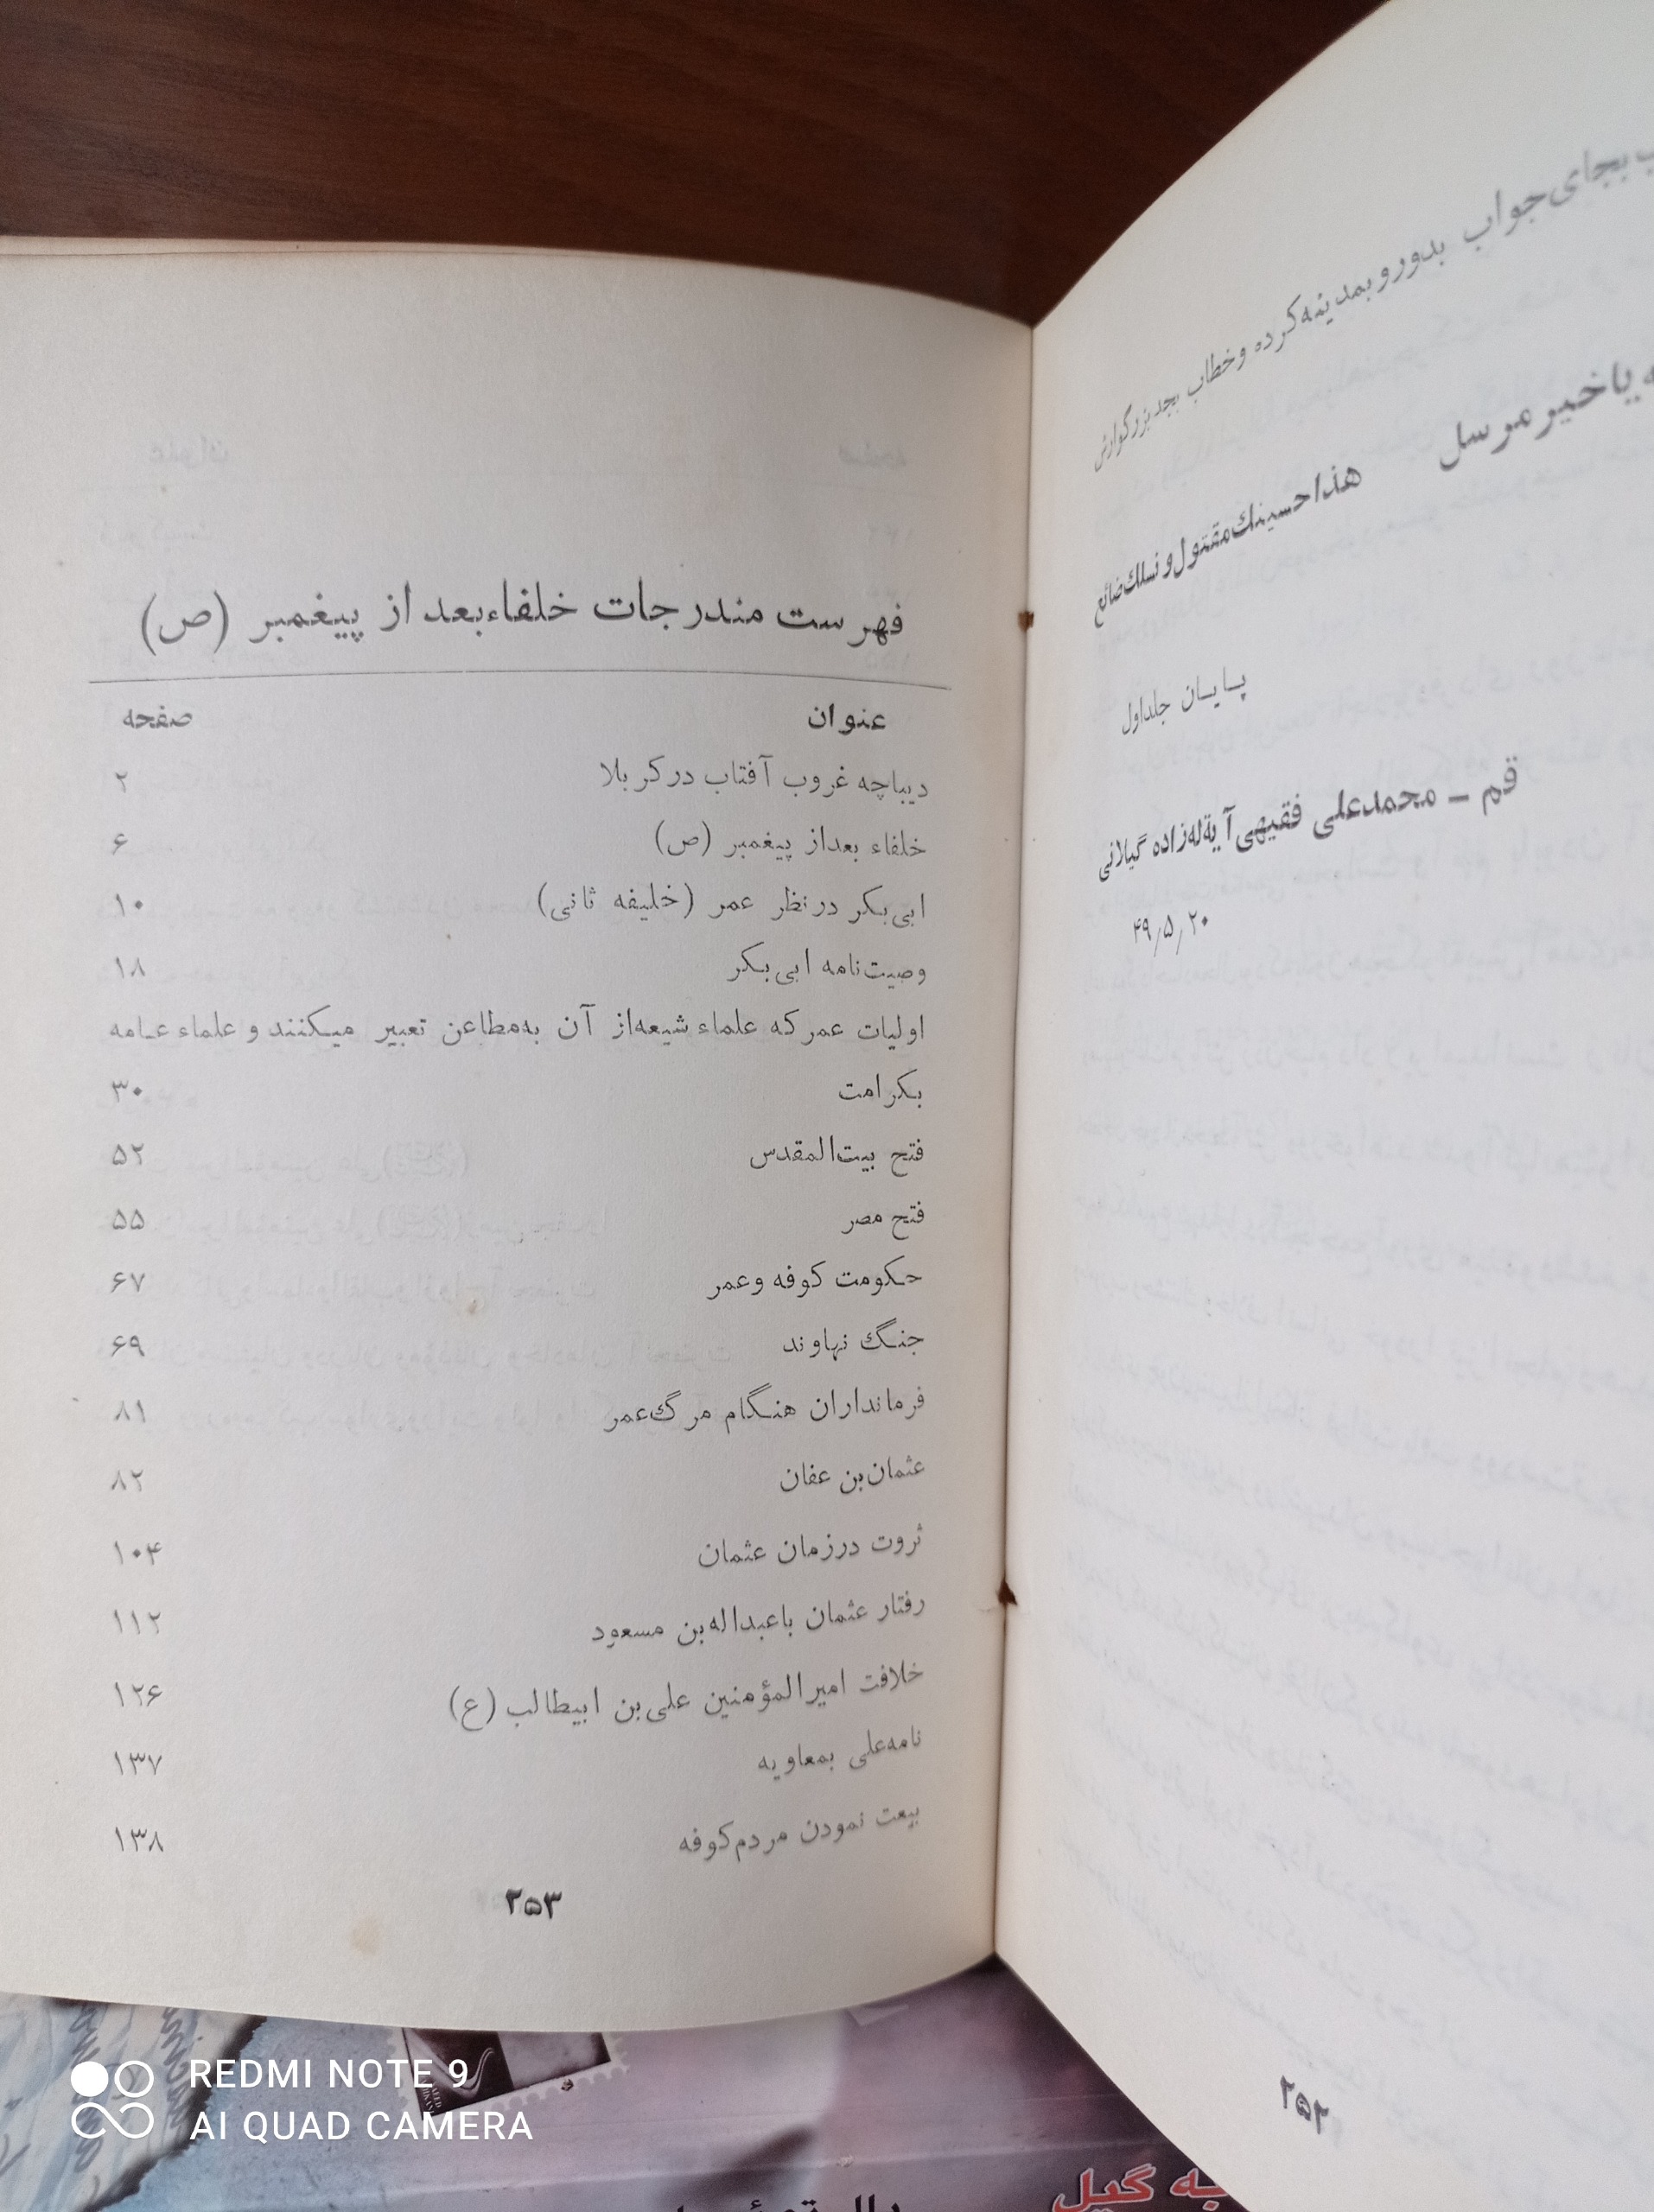 بجای جواب بدور و بمدینه کرده و خطاب بجد بزرگوارش
یا خیر مرسل هذا حسینك مقتول و نسلك ضائع
پایان جلد اول
قم – محمدعلی فقیهی آیة‌اله‌زاده گیلانی
۴۹٫۵٫۲۰
فهرست مندرجات خلفاء بعد از پیغمبر (ص)
عنوان صفحه
دیباچه غروب آفتاب در کربلا ۲
خلفاء بعداز پیغمبر (ص) ۶
ابی‌بکر درنظر عمر (خلیفه ثانی) ۱۰
وصیت‌نامه ابی‌بکر ۱۸
اولیات عمر که علماء شیعه‌از آن به‌مطاعن تعبیر میکنند و علماء عامه
بکرامت ۳۰
فتح بیت‌المقدس ۵۲
فتح مصر ۵۵
حکومت کوفه وعمر ۶۷
جنگ نهاوند ۶۹
فرمانداران هنگام مرگ‌عمر ۸۱
عثمان‌بن عفان ۸۲
ثروت درزمان عثمان ۱۰۴
رفتار عثمان باعبداله‌بن مسعود ۱۱۲
خلافت امیرالمؤمنین علی‌بن ابیطالب (ع) ۱۲۶
نامه‌علی بمعاویه ۱۳۷
بیعت نمودن مردم‌کوفه ۱۳۸
۲۵۳
REDMI NOTE 9
AI QUAD CAMERA